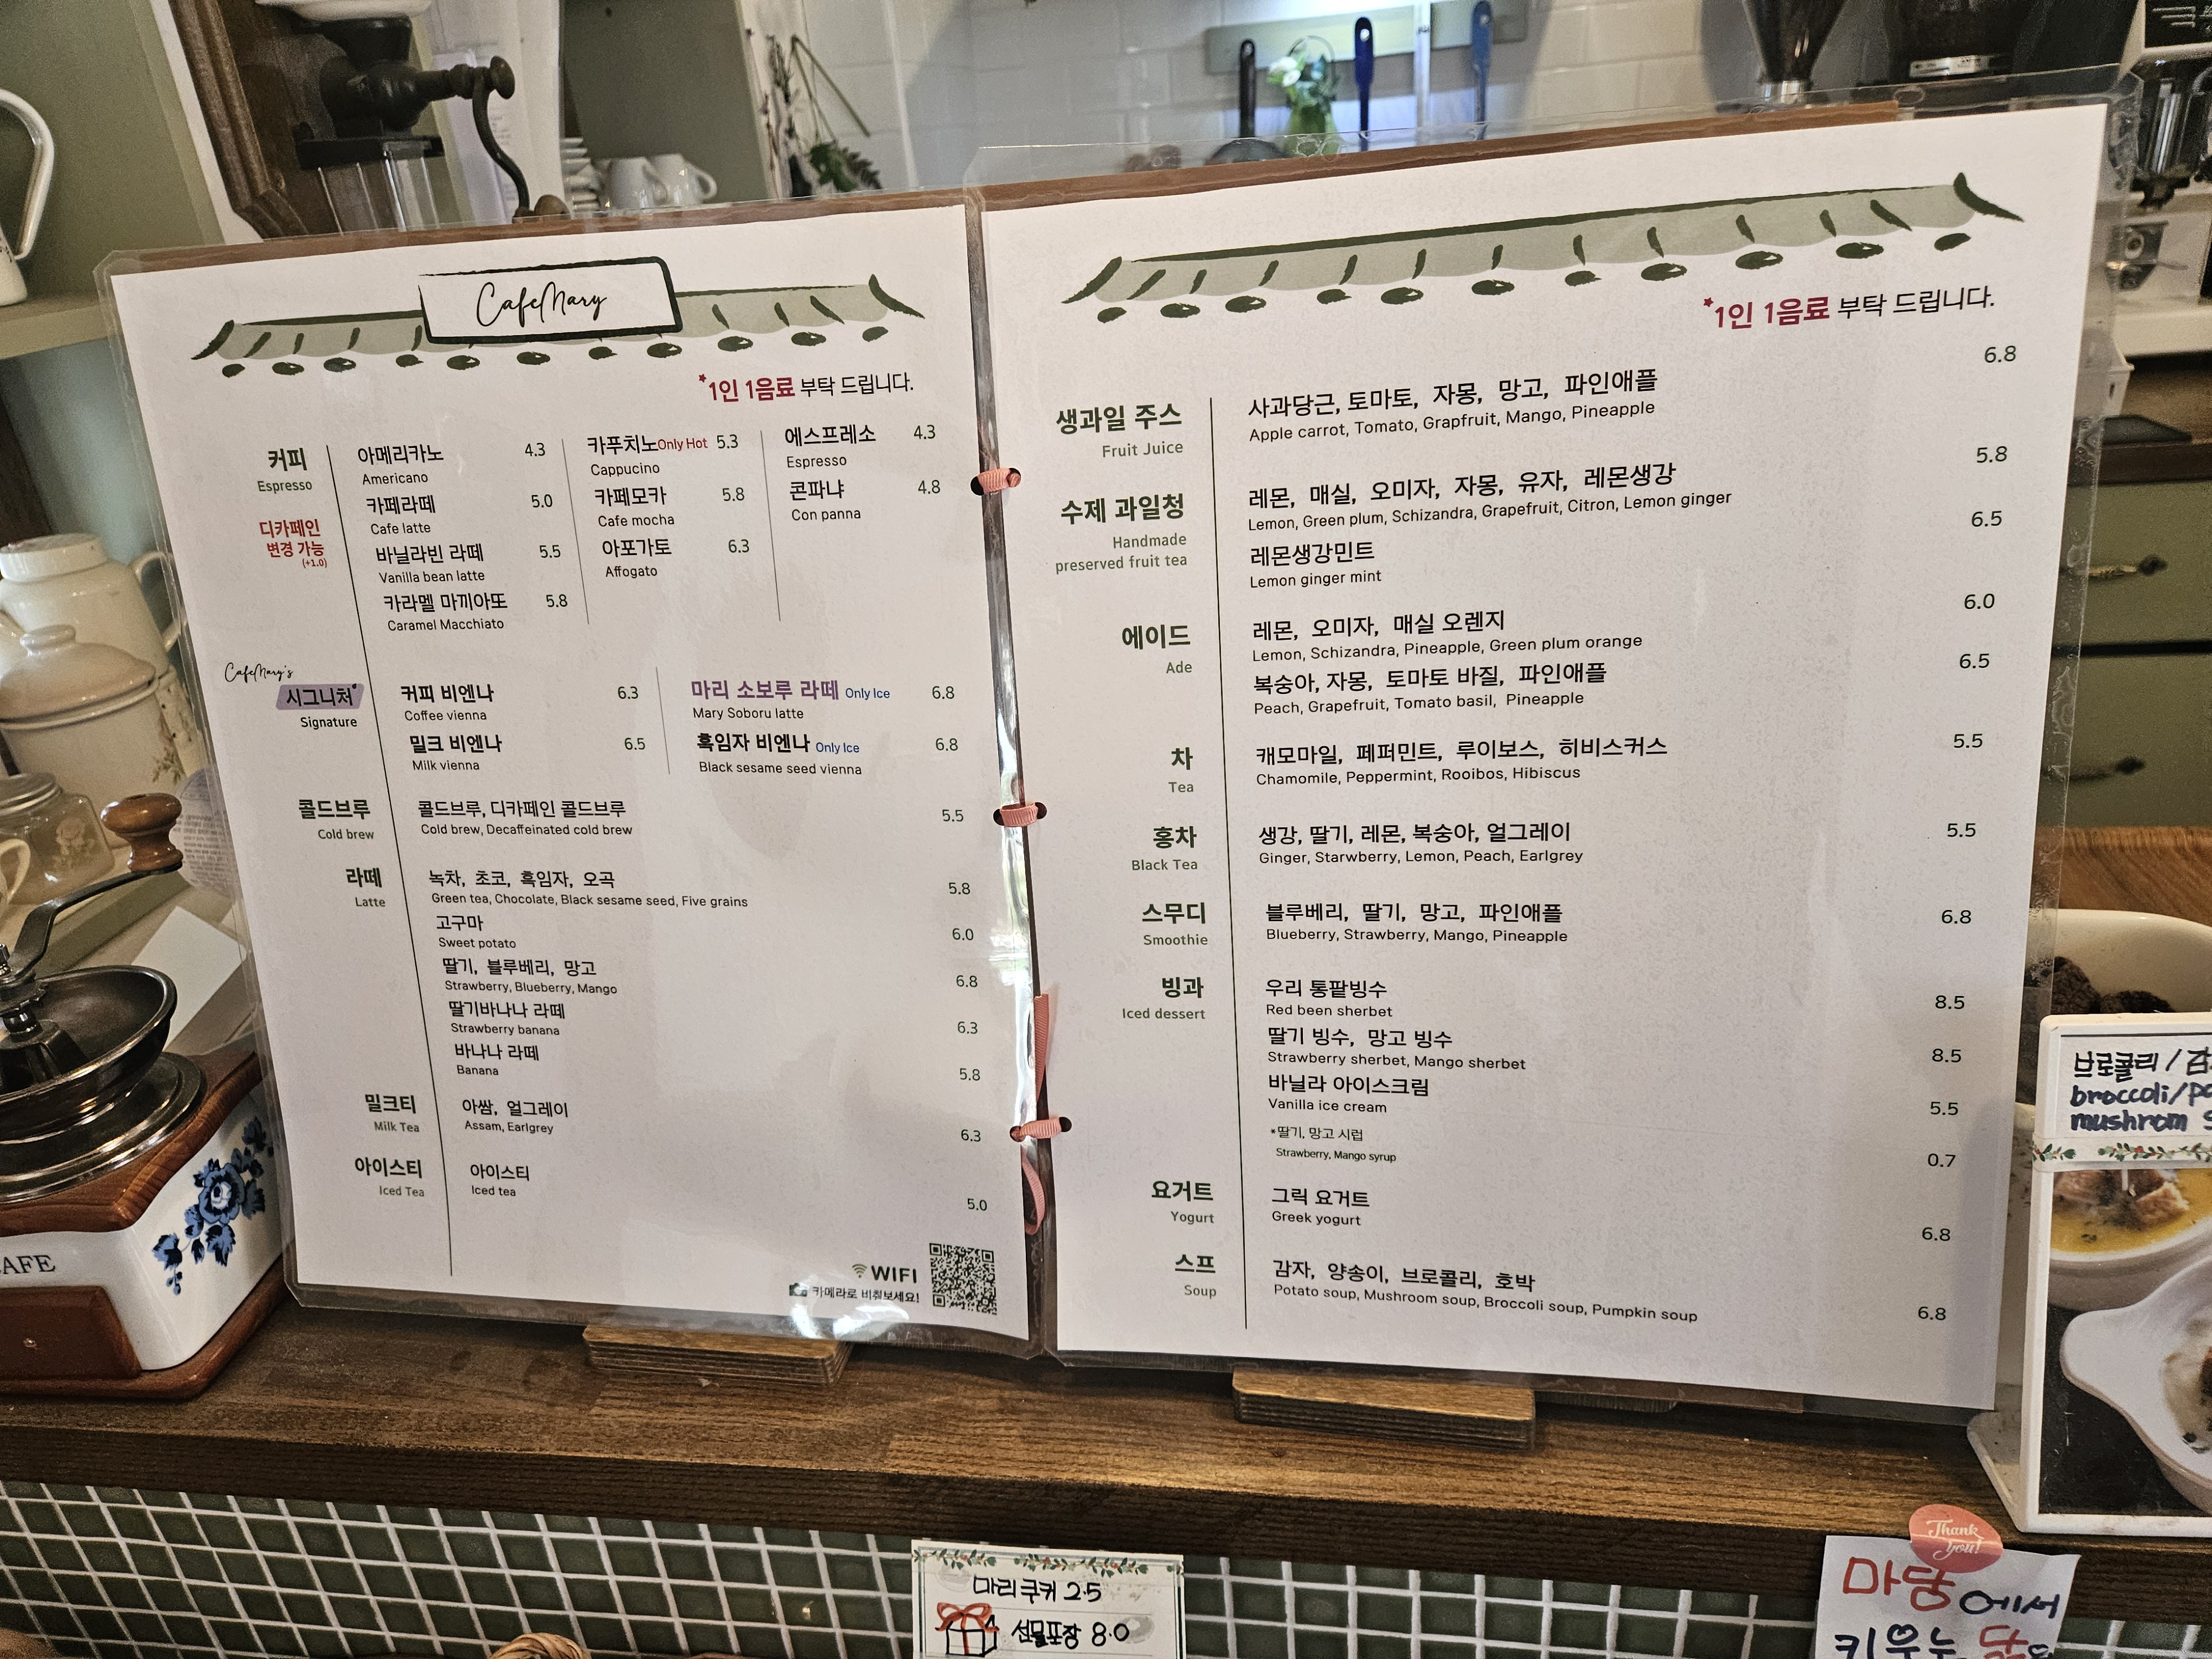 CafeMary
*1인 1음료 부탁 드립니다.
커피
Espresso
디카페인
변경 가능
(+1.0)
아메리카노 4.3
Americano
카페라떼 5.0
Cafe latte
바닐라빈 라떼 5.5
Vanilla bean latte
카라멜 마끼아또 5.8
Caramel Macchiato
카푸치노 Only Hot 5.3
Cappucino
카페모카 5.8
Cafe mocha
아포가토 6.3
Affogato
에스프레소 4.3
Espresso
콘파냐 4.8
Con panna
CafeMary's
시그니처
Signature
커피 비엔나 6.3
Coffee vienna
밀크 비엔나 6.5
Milk vienna
마리 소보루 라떼 Only Ice 6.8
Mary Soboru latte
흑임자 비엔나 Only Ice 6.8
Black sesame seed vienna
콜드브루
Cold brew
콜드브루, 디카페인 콜드브루 5.5
Cold brew, Decaffeinated cold brew
라떼
Latte
녹차, 초코, 흑임자, 오곡 5.8
Green tea, Chocolate, Black sesame seed, Five grains
고구마 6.0
Sweet potato
딸기, 블루베리, 망고 6.8
Strawberry, Blueberry, Mango
딸기바나나 라떼 6.3
Strawberry banana
바나나 라떼 5.8
Banana
밀크티
Milk Tea
아쌈, 얼그레이 6.3
Assam, Earlgrey
아이스티
Iced Tea
아이스티 5.0
Iced tea
WIFI
카메라로 비춰보세요!
*1인 1음료 부탁 드립니다.
생과일 주스
Fruit Juice
사과당근, 토마토, 자몽, 망고, 파인애플 6.8
Apple carrot, Tomato, Grapfruit, Mango, Pineapple
수제 과일청
Handmade
preserved fruit tea
레몬, 매실, 오미자, 자몽, 유자, 레몬생강 5.8
Lemon, Green plum, Schizandra, Grapefruit, Citron, Lemon ginger
레몬생강민트 6.5
Lemon ginger mint
에이드
Ade
레몬, 오미자, 매실 오렌지 6.0
Lemon, Schizandra, Pineapple, Green plum orange
복숭아, 자몽, 토마토 바질, 파인애플 6.5
Peach, Grapefruit, Tomato basil, Pineapple
차
Tea
캐모마일, 페퍼민트, 루이보스, 히비스커스 5.5
Chamomile, Peppermint, Rooibos, Hibiscus
홍차
Black Tea
생강, 딸기, 레몬, 복숭아, 얼그레이 5.5
Ginger, Starwberry, Lemon, Peach, Earlgrey
스무디
Smoothie
블루베리, 딸기, 망고, 파인애플 6.8
Blueberry, Strawberry, Mango, Pineapple
빙과
Iced dessert
우리 통팥빙수 8.5
Red been sherbet
딸기 빙수, 망고 빙수 8.5
Strawberry sherbet, Mango sherbet
바닐라 아이스크림 5.5
Vanilla ice cream
*딸기, 망고 시럽 0.7
Strawberry, Mango syrup
요거트
Yogurt
그릭 요거트 6.8
Greek yogurt
스프
Soup
감자, 양송이, 브로콜리, 호박 6.8
Potato soup, Mushroom soup, Broccoli soup, Pumpkin soup
브로콜리 /
broccoli/
mushrom
AFE
마리쿠키 2.5
선물포장 8.0
Thank
you!
마당에서
키우는